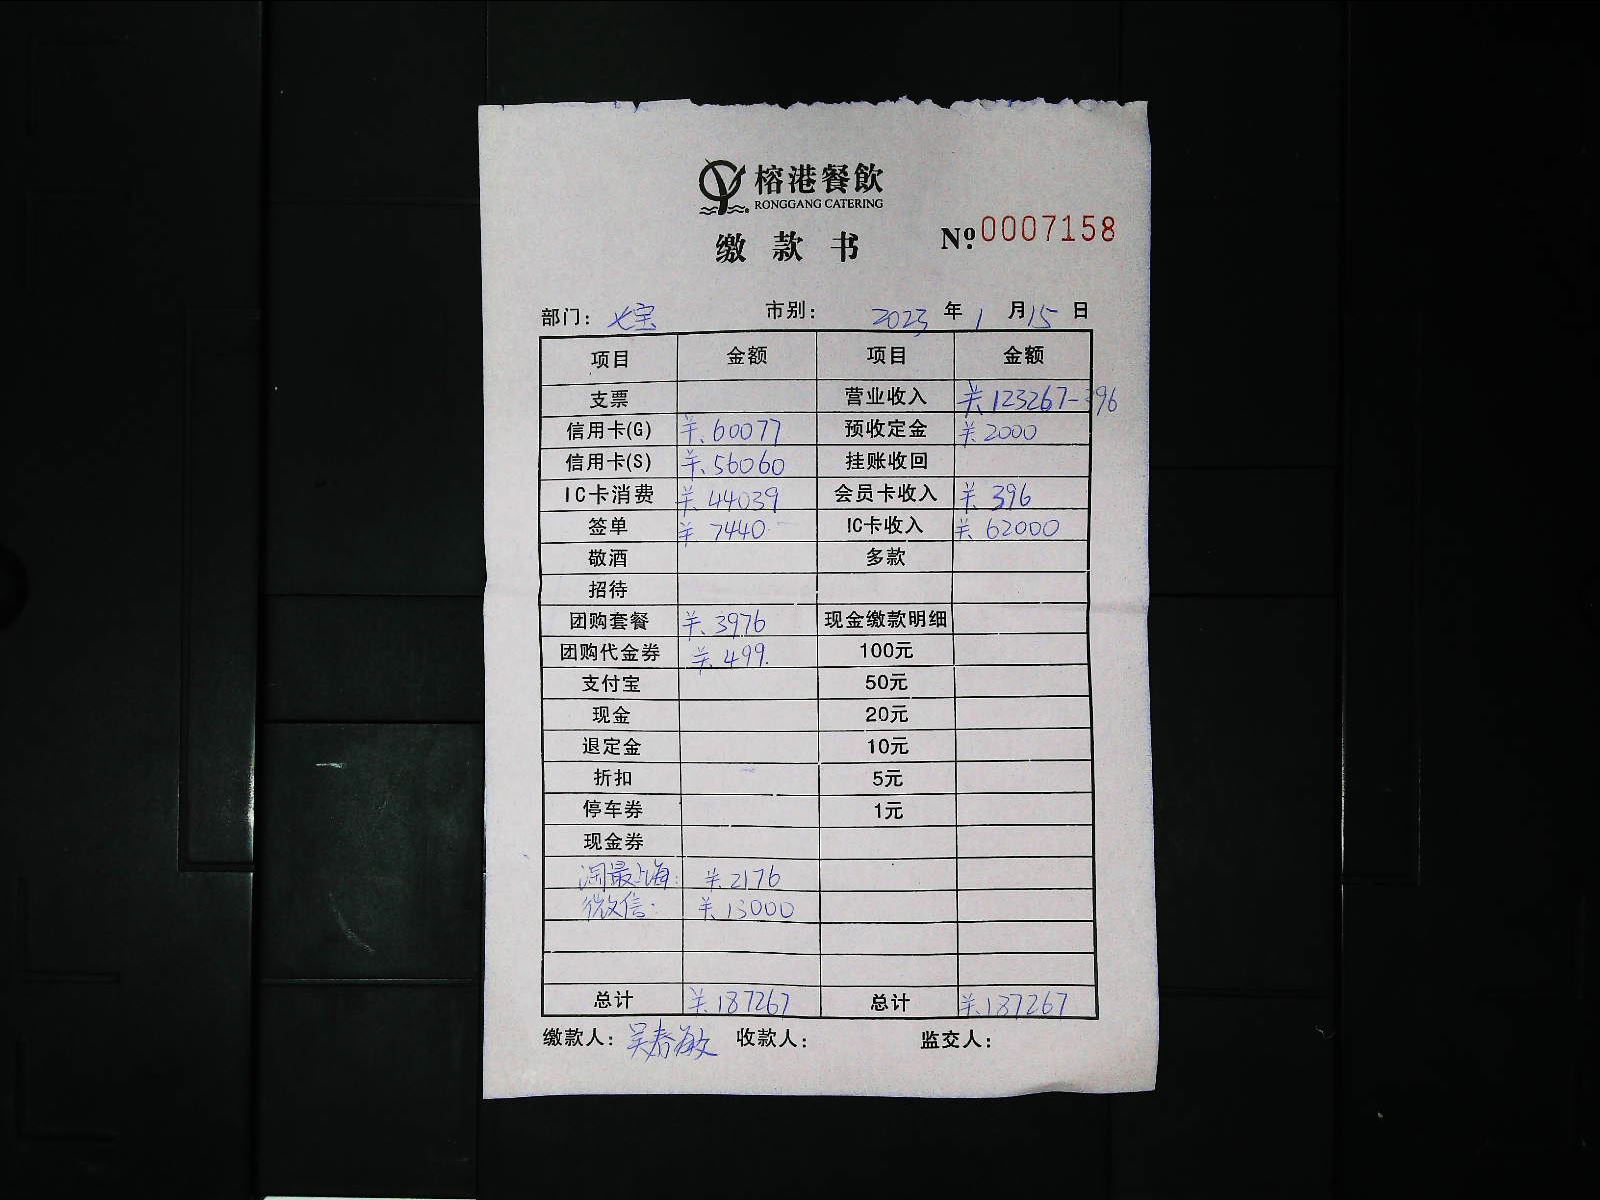 榕港餐飲
RONGGANG CATERING
缴款书 Nº 0007158
部门: 七宝 市别: 2023 年 1 月 15 日
项目 金额 项目 金额
支票 营业收入 ¥123267-396
信用卡(G) ¥60077 预收定金 ¥2000
信用卡(S) ¥56060 挂账收回
IC卡消费 ¥44039 会员卡收入 ¥396
签单 ¥7440 IC卡收入 ¥62000
敬酒 多款
招待
团购套餐 ¥3976 现金缴款明细
团购代金券 ¥499. 100元
支付宝 50元
现金 20元
退定金 10元
折扣 5元
停车券 1元
现金券
淘最上海: ¥2176
微信: ¥13000
总计 ¥187267 总计 ¥187267
缴款人: 吴春敏 收款人: 监交人: